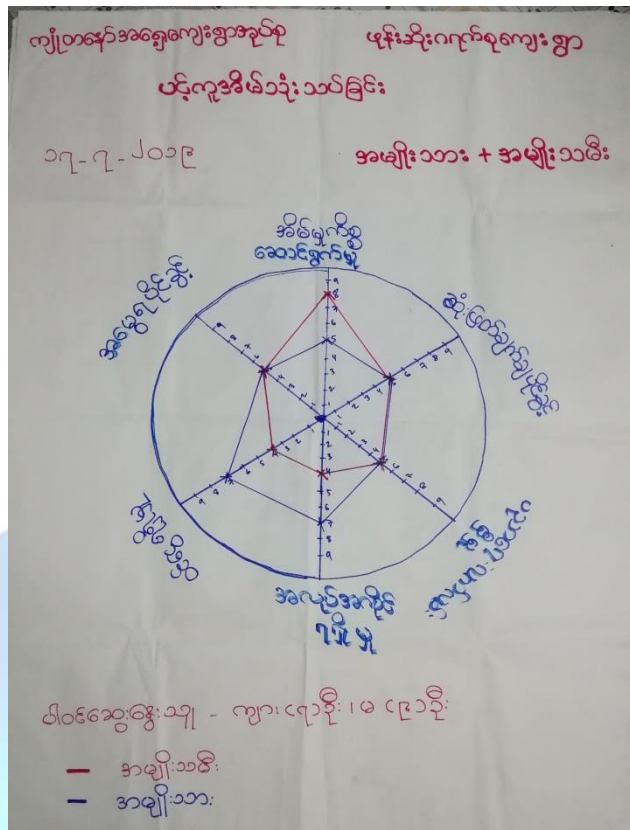 ကျုံတနော်အရှေ့ကျေးရွာအုပ်စု ဖုန်းဆိုးဂရက်စုကျေးရွာ
ပင့်ကူအိမ်သုံးသပ်ခြင်း
၁၇-၇-၂၀၁၉ အမျိုးသား + အမျိုးသမီး
အိမ်မှုကိစ္စ
ဆောင်ရွက်မှု
ဆုံးဖြတ်ချက်ချပိုင်ခွင့်
အမွေရပိုင်ခွင့်
အလုပ်အကိုင်
ရရှိမှု
ပါဝင်ဆွေးနွေးသူ - ကျား (၇) ဦး ၊ မ (၉) ဦး
အမျိုးသမီး
အမျိုးသား